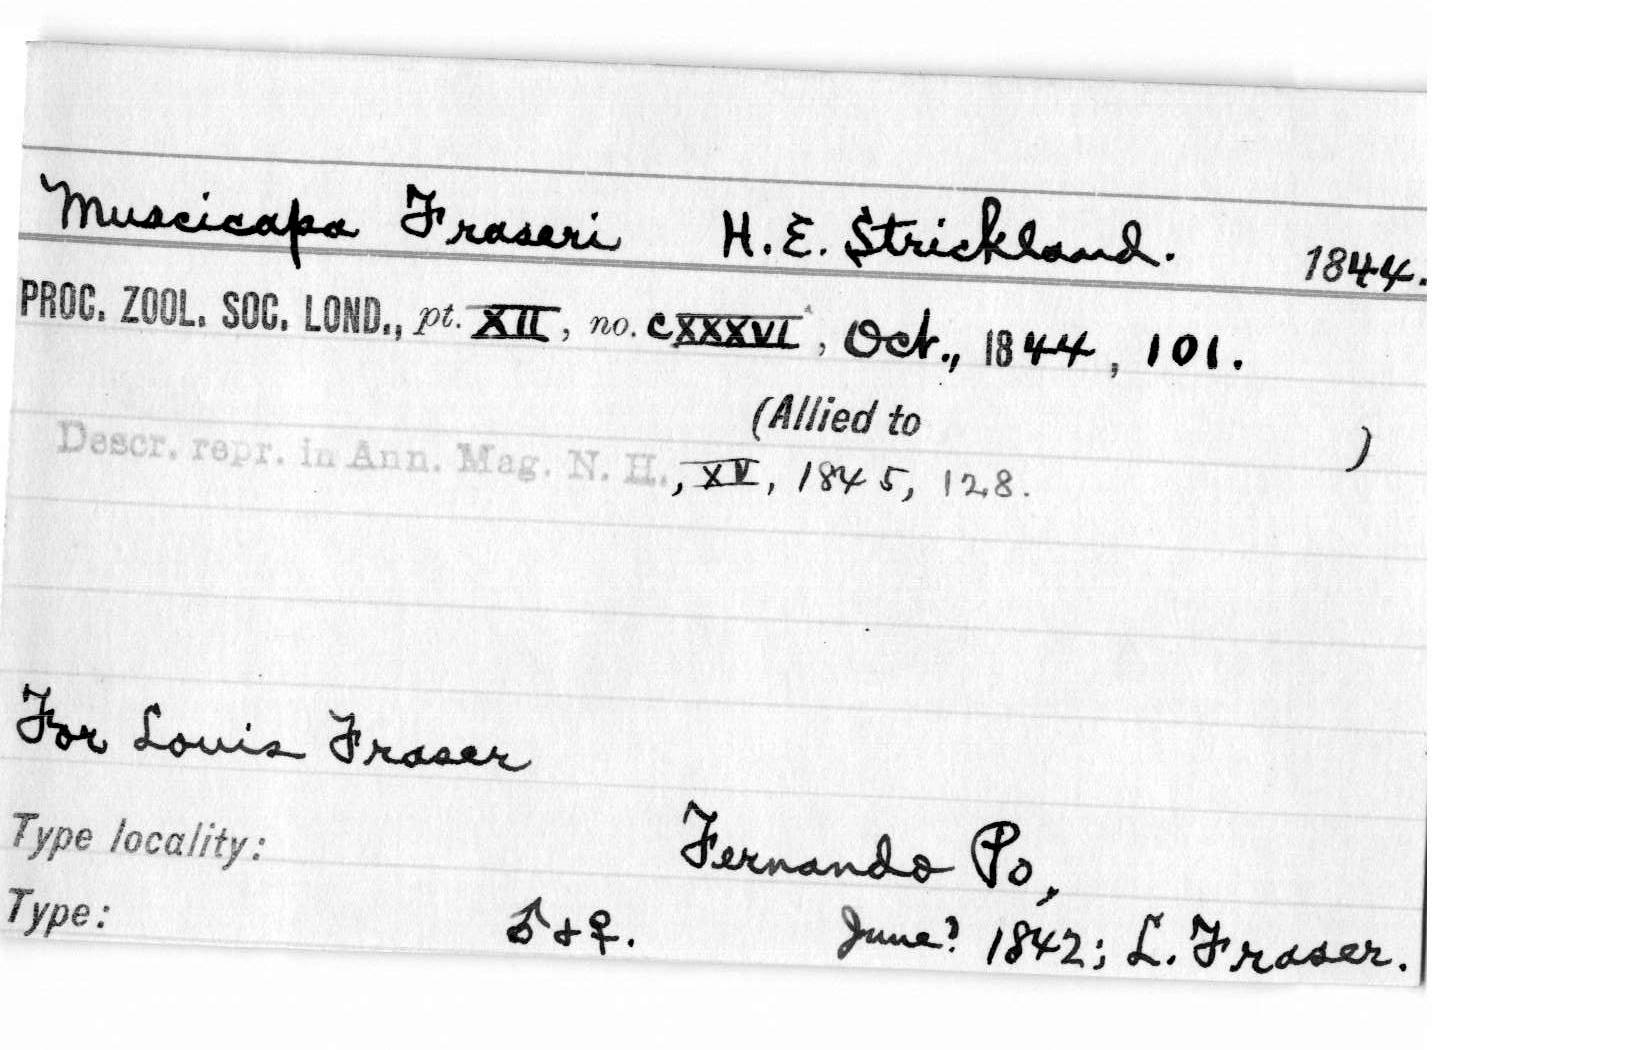 Muscicapa Fraseri H. E. Strickland. 1844.
PROC. ZOOL. SOC. LOND., pt. XII, no. CXXXVI, Oct., 1844, 101.
(Allied to )
Descr. repr. in Ann. Mag. N. H., XV, 1845, 128.
For Louis Fraser
Type locality: Fernando Po,
Type: ♂ & ♀. June? 1842; L. Fraser.